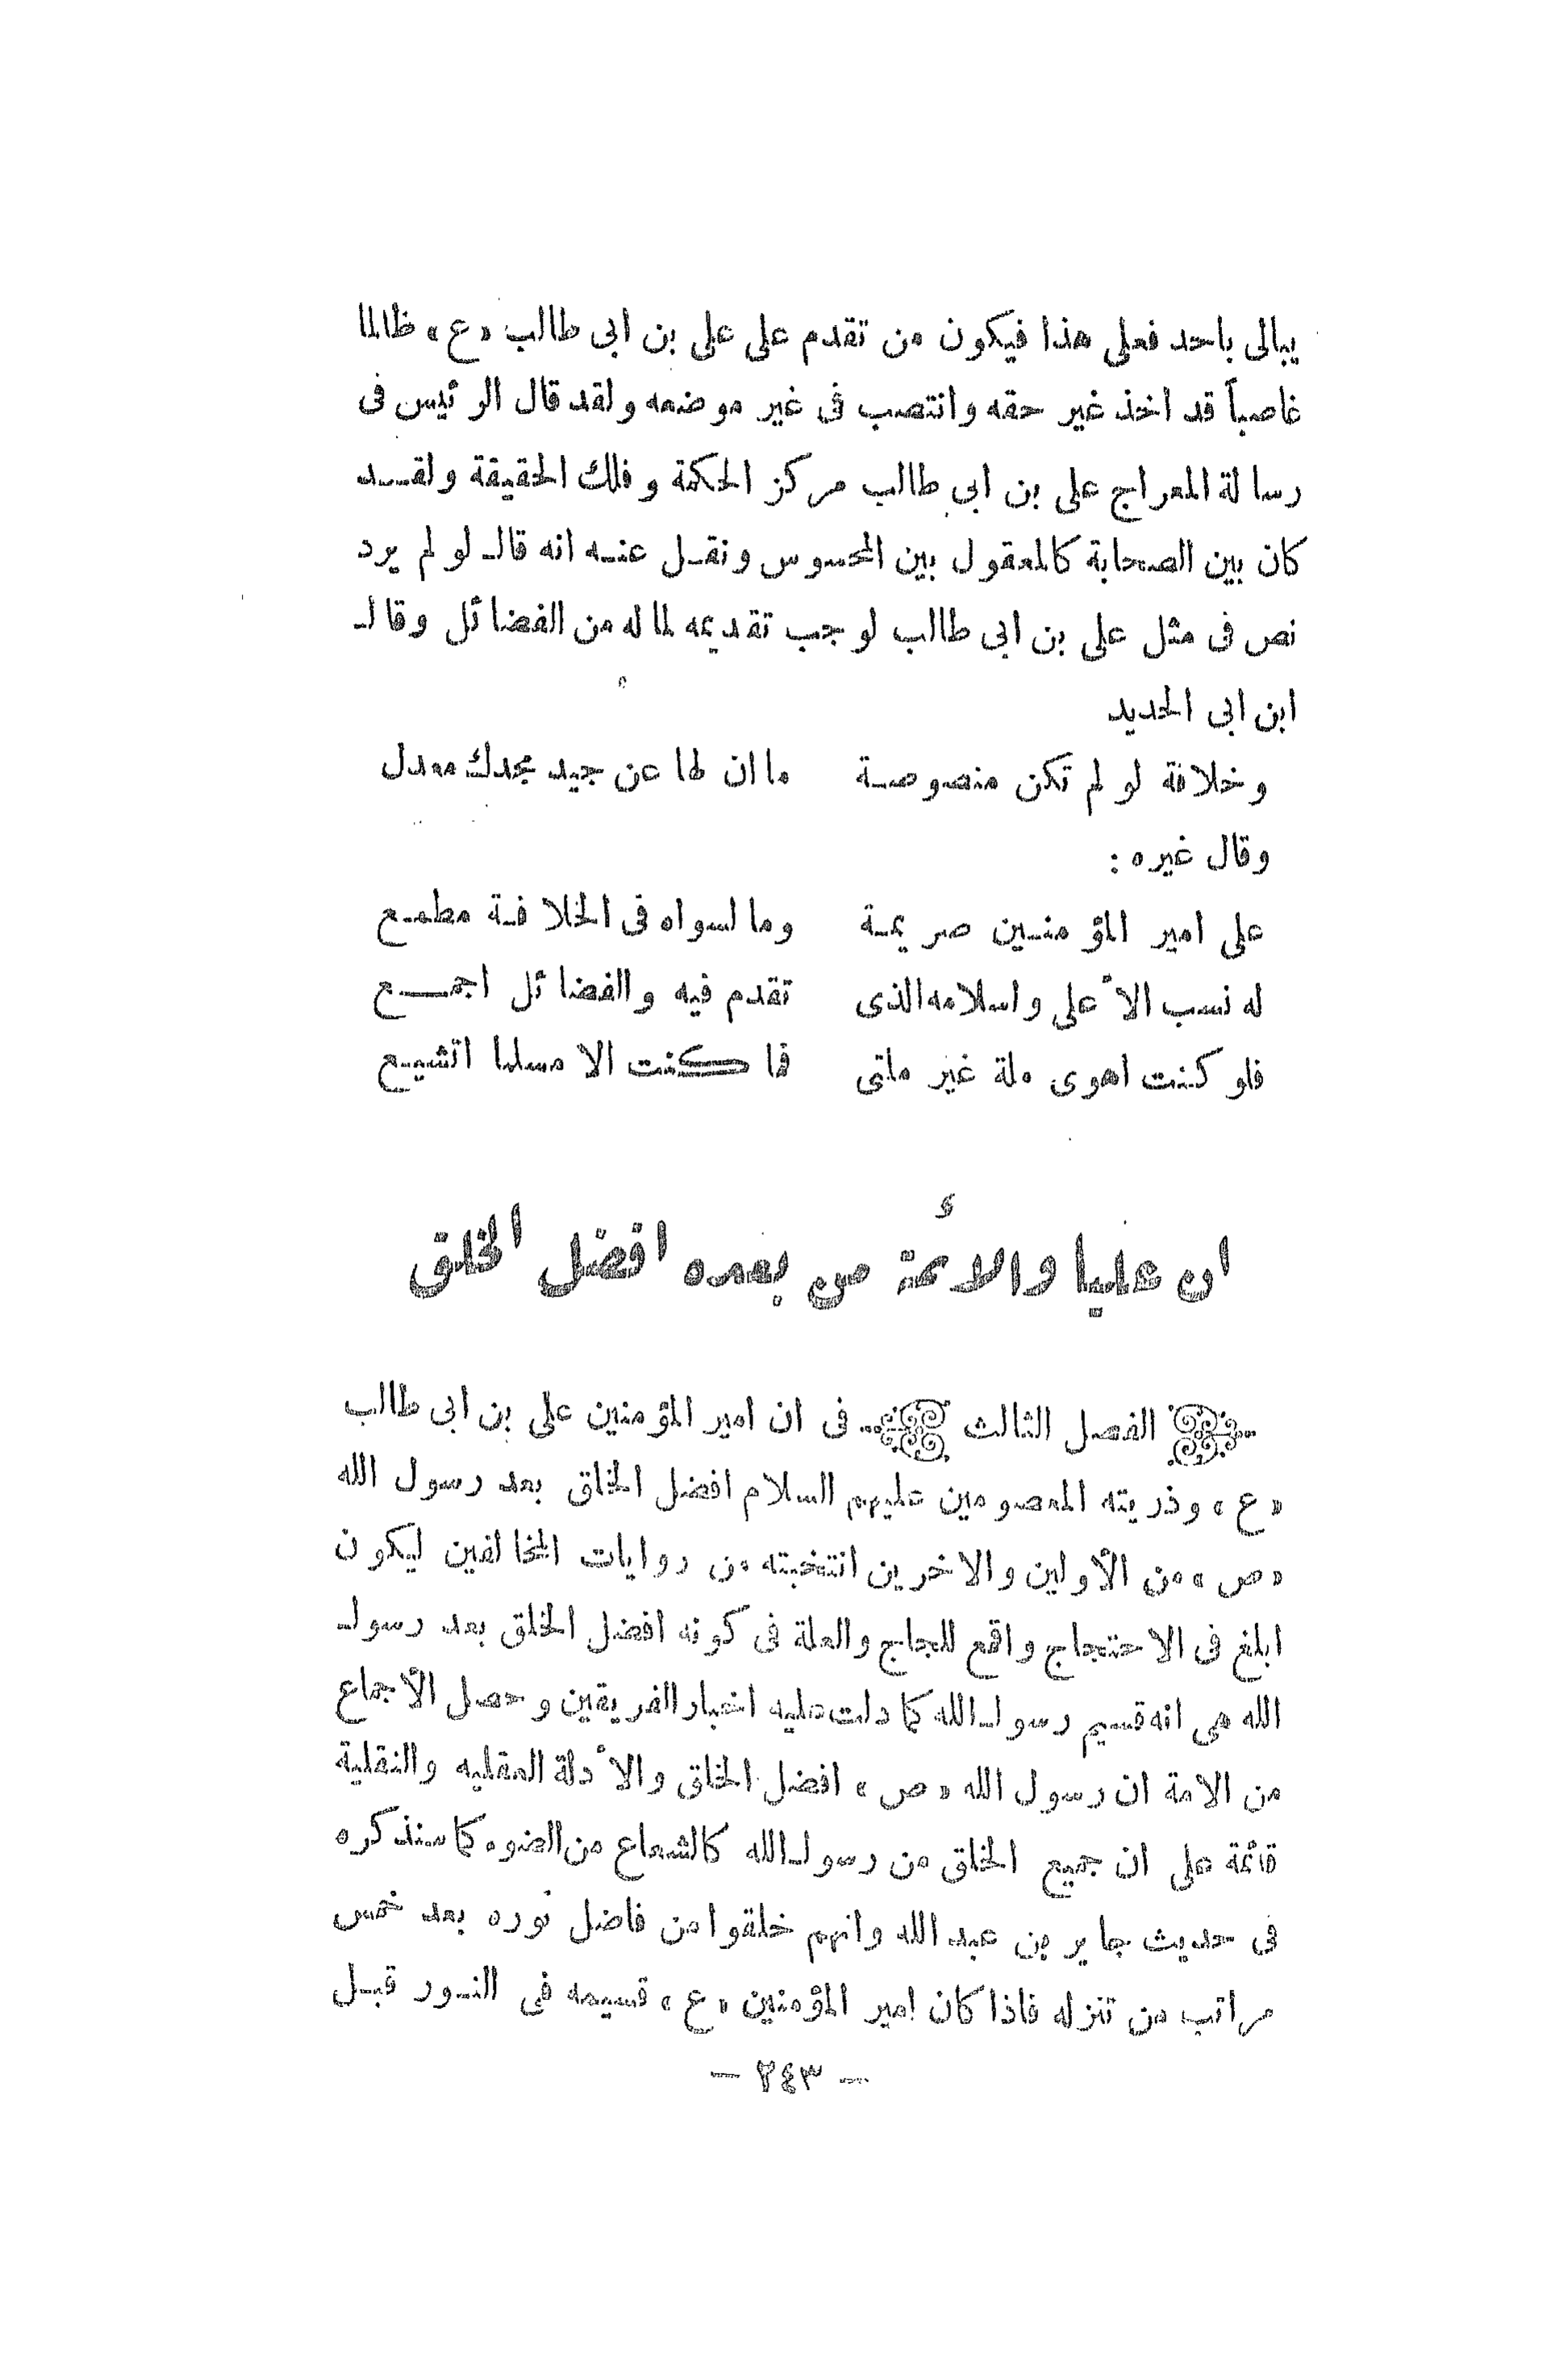 يبالى باحد فعلى هذا فيكون من تقدم على على بن ابى طالب «ع» ظالما
غاصباً قد اخذ غير حقه وانتصب فى غير موضعه ولقد قال الرئيس فى
رسالة المعراج على بن ابى طالب مركز الحكمة وفلك الحقيقة ولقد
كان بين الصحابة كالمعقول بين المحسوس ونقل عنه انه قال لو لم يرد
نص فى مثل على بن ابى طالب لوجب تقديمه لماله من الفضائل وقال
ابن ابى الحديد
وخلافة لو لم تكن منصوصة ما ان لها عن جيد مجدك معدل
وقال غيره :
على امير المؤمنين صريمة وما لسواه فى الخلافة مطمع
له نسب الأعلى واسلامه الذى تقدم فيه والفضائل اجمع
فلو كنت اهوى ملة غير ملتى فما كنت الا مسلما اتشيع
ان عليا والأئمة من بعده افضل الخلق
الفصل الثالث فى ان امير المؤمنين على بن ابى طالب
«ع» وذريته المعصومين عليهم السلام افضل الخلق بعد رسول الله
«ص» من الأولين والاخرين انتخبته من روايات المخالفين ليكون
ابلغ فى الاحتجاج واقمع للجاج والعلة فى كونه افضل الخلق بعد رسول
الله هى انه قسيم رسول الله كما دلت عليه اخبار الفريقين وحصل الأجماع
من الامة ان رسول الله «ص» افضل الخلق والأدلة العقليه والنقلية
قائمة على ان جميع الخلق من رسول الله كالشعاع من الضوء كما سنذكره
فى حديث جابر بن عبد الله وانهم خلقوا من فاضل نوره بعد خمس
مراتب من تنزله فاذا كان امير المؤمنين «ع» قسيمه فى النور قبل
— ٢٤٣ —